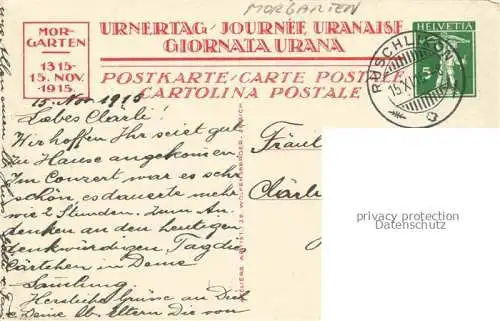 MORGARTEN
MOR-
GARTEN
1315-
15. NOV.
-1915
URNERTAG / JOURNÉE URANAISE
GIORNATA URANA
POSTKARTE / CARTE POSTALE
CARTOLINA POSTALE
HELVETIA
5
RÜSCHLIKON
15.XI.
15. Nov 1915
Liebes Clärli!
Wir hoffen Ihr seiet gut
zu Hause angekommen
Im Conzert war es sehr
schön es dauerte mehr
wie 2 Stunden. Zum An-
denken an den heutigen
denkwürdigen Tag dies
Kärtchen in Deine
Samlung
Herzliche Grüsse an Dich
& Deine lb. Eltern Die von
Fräul
Clärl
ATELIERS ARTIST. J.E. WOLFENSBERGER - ZURICH
privacy protection
Datenschutz